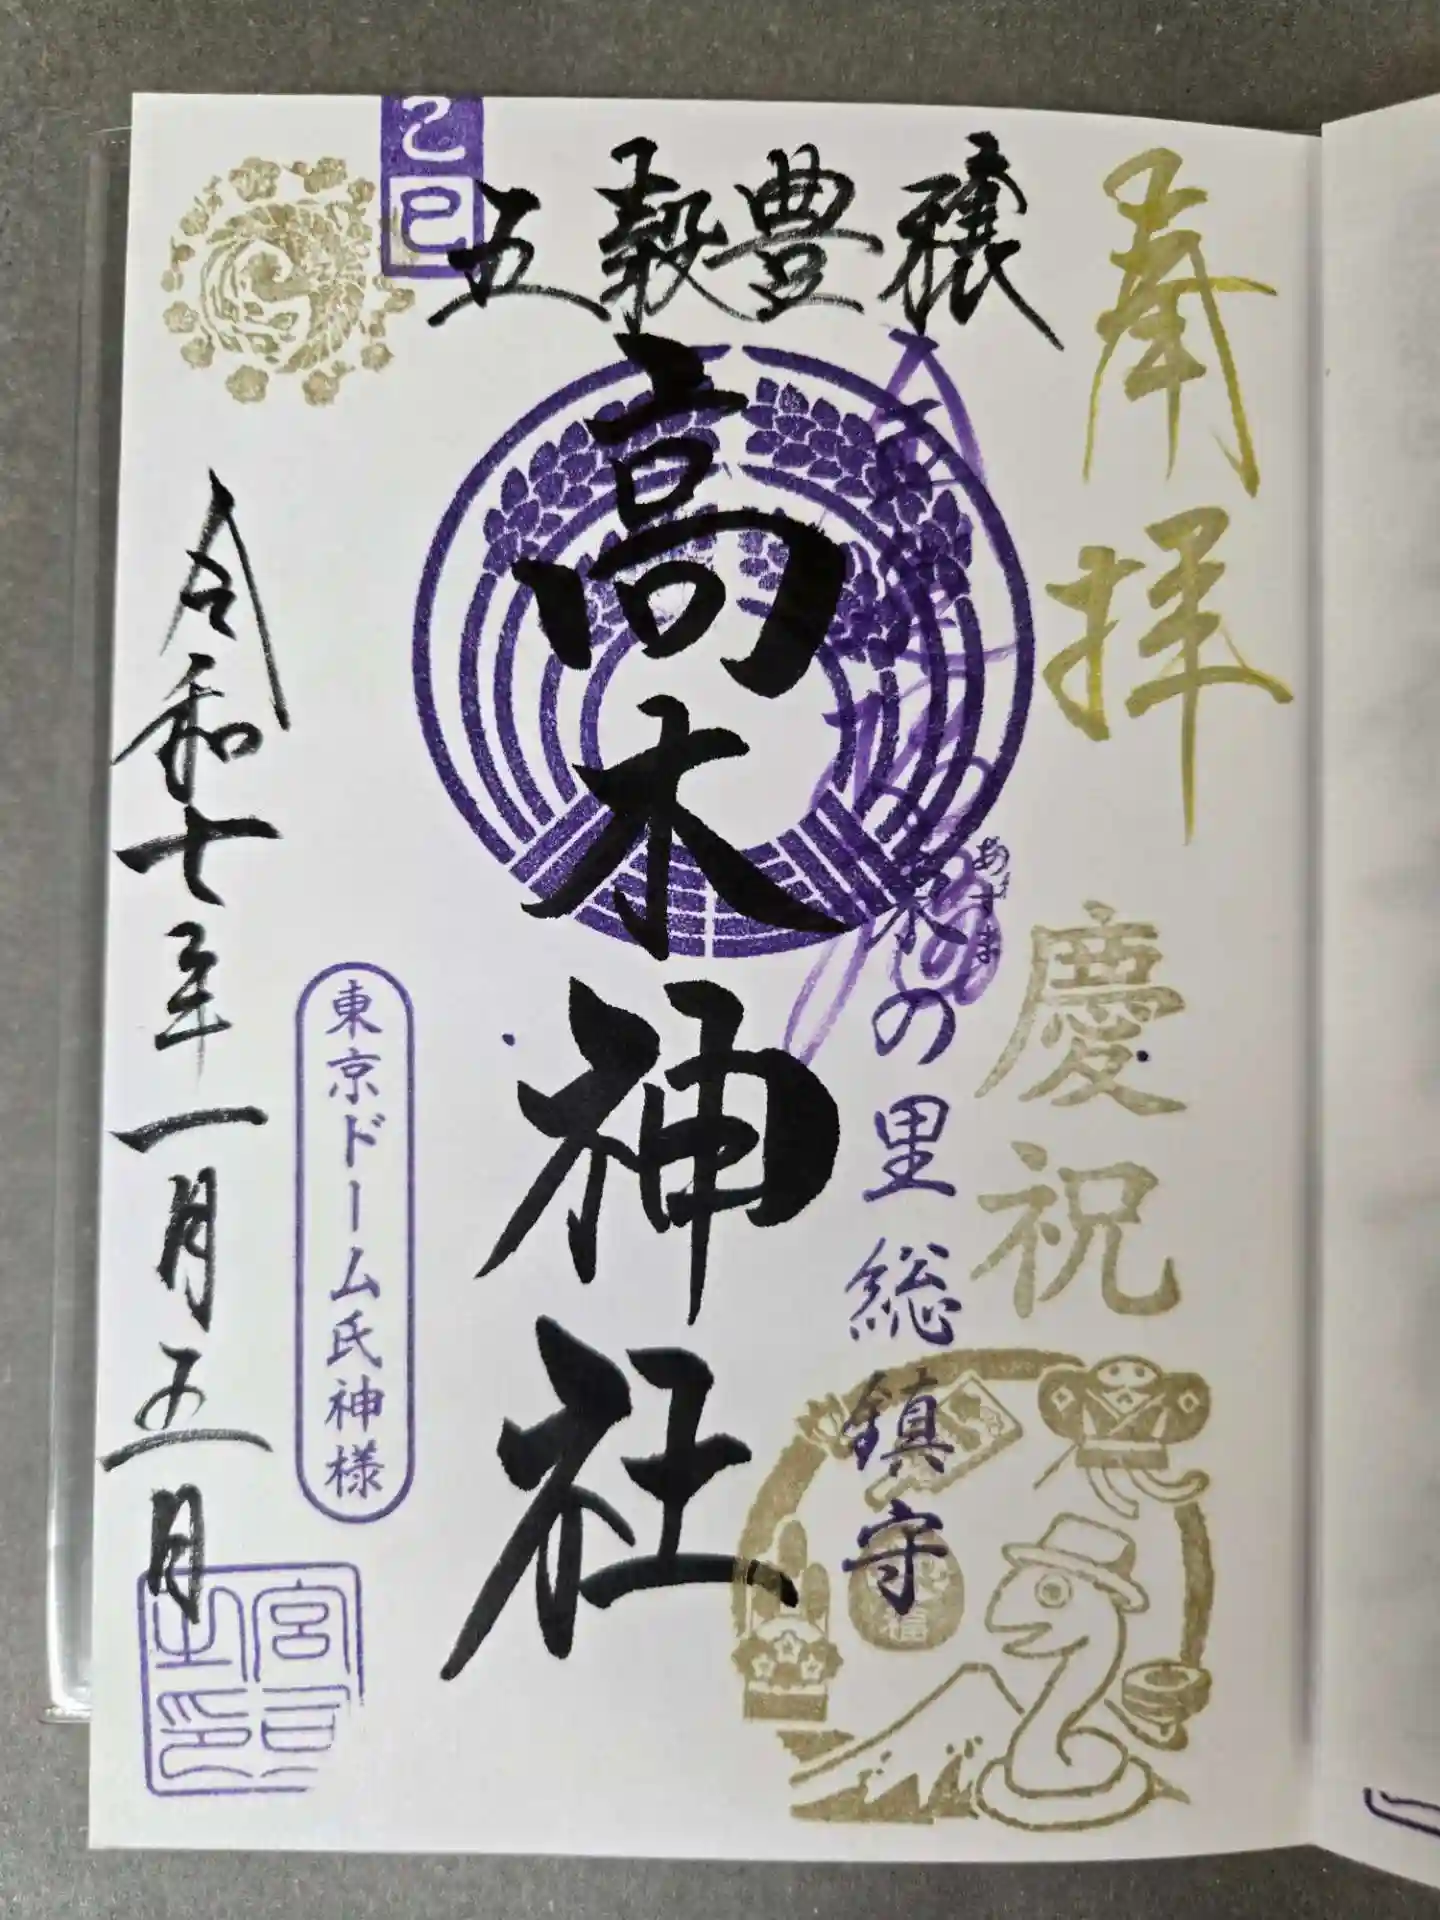 奉拝
慶祝
五穀豊穣
あずま
東の里総鎮守
高木神社
乙巳
東京ドーム氏神様
令和七年一月五日
宮司之印
福